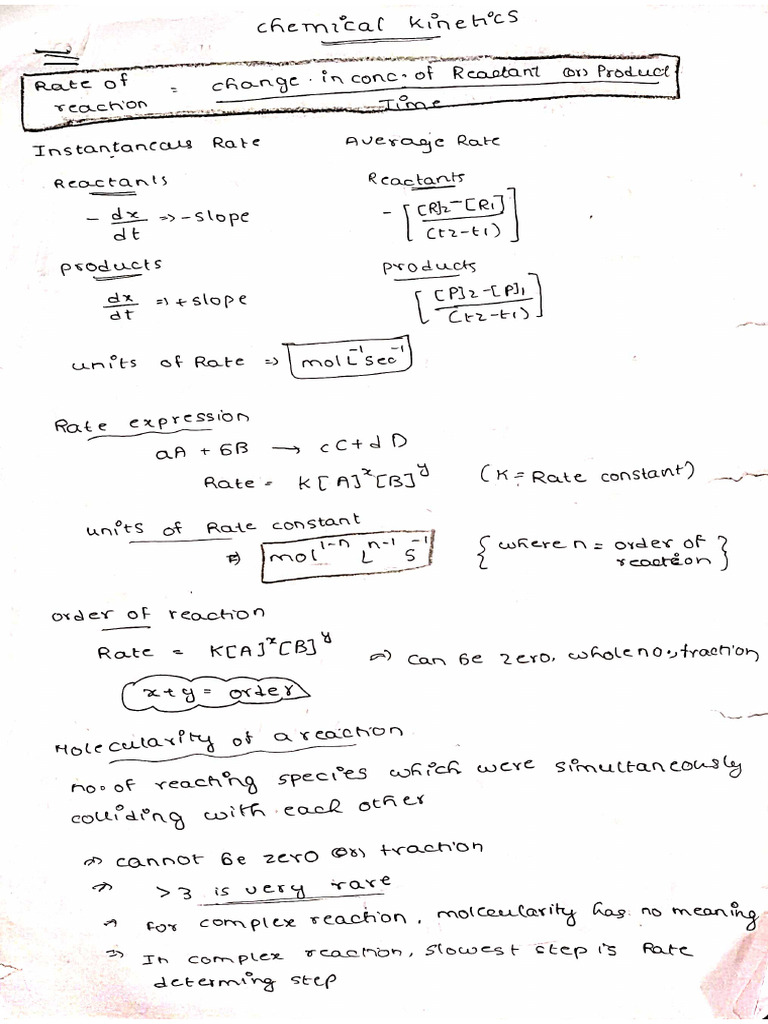 Chemical Kinetics
Rate of reaction = change in conc. of Reactant (or) Product / Time
Instantaneous Rate
Average Rate
Reactants
Reactants
- dx/dt => -slope
- [[R]2-[R1]/(t2-t1)]
products
products
dx/dt => +slope
[[P]2-[P]1/(t2-t1)]
units of Rate => mol L⁻¹ sec⁻¹
Rate expression
aA + bB → cC + dD
Rate = K[A]ˣ[B]ʸ (K = Rate constant)
units of Rate constant
=> mol¹⁻ⁿ Lⁿ⁻¹ s⁻¹ {where n = order of reaction}
order of reaction
Rate = K[A]ˣ[B]ʸ => can be zero, whole no., fraction
x+y = order
Molecularity of a reaction
no. of reacting species which were simultaneously
colliding with each other
=> cannot be zero (or) fraction
=> >3 is very rare
=> for complex reaction, molecularity has no meaning
=> In complex reaction, slowest step is Rate
determining step